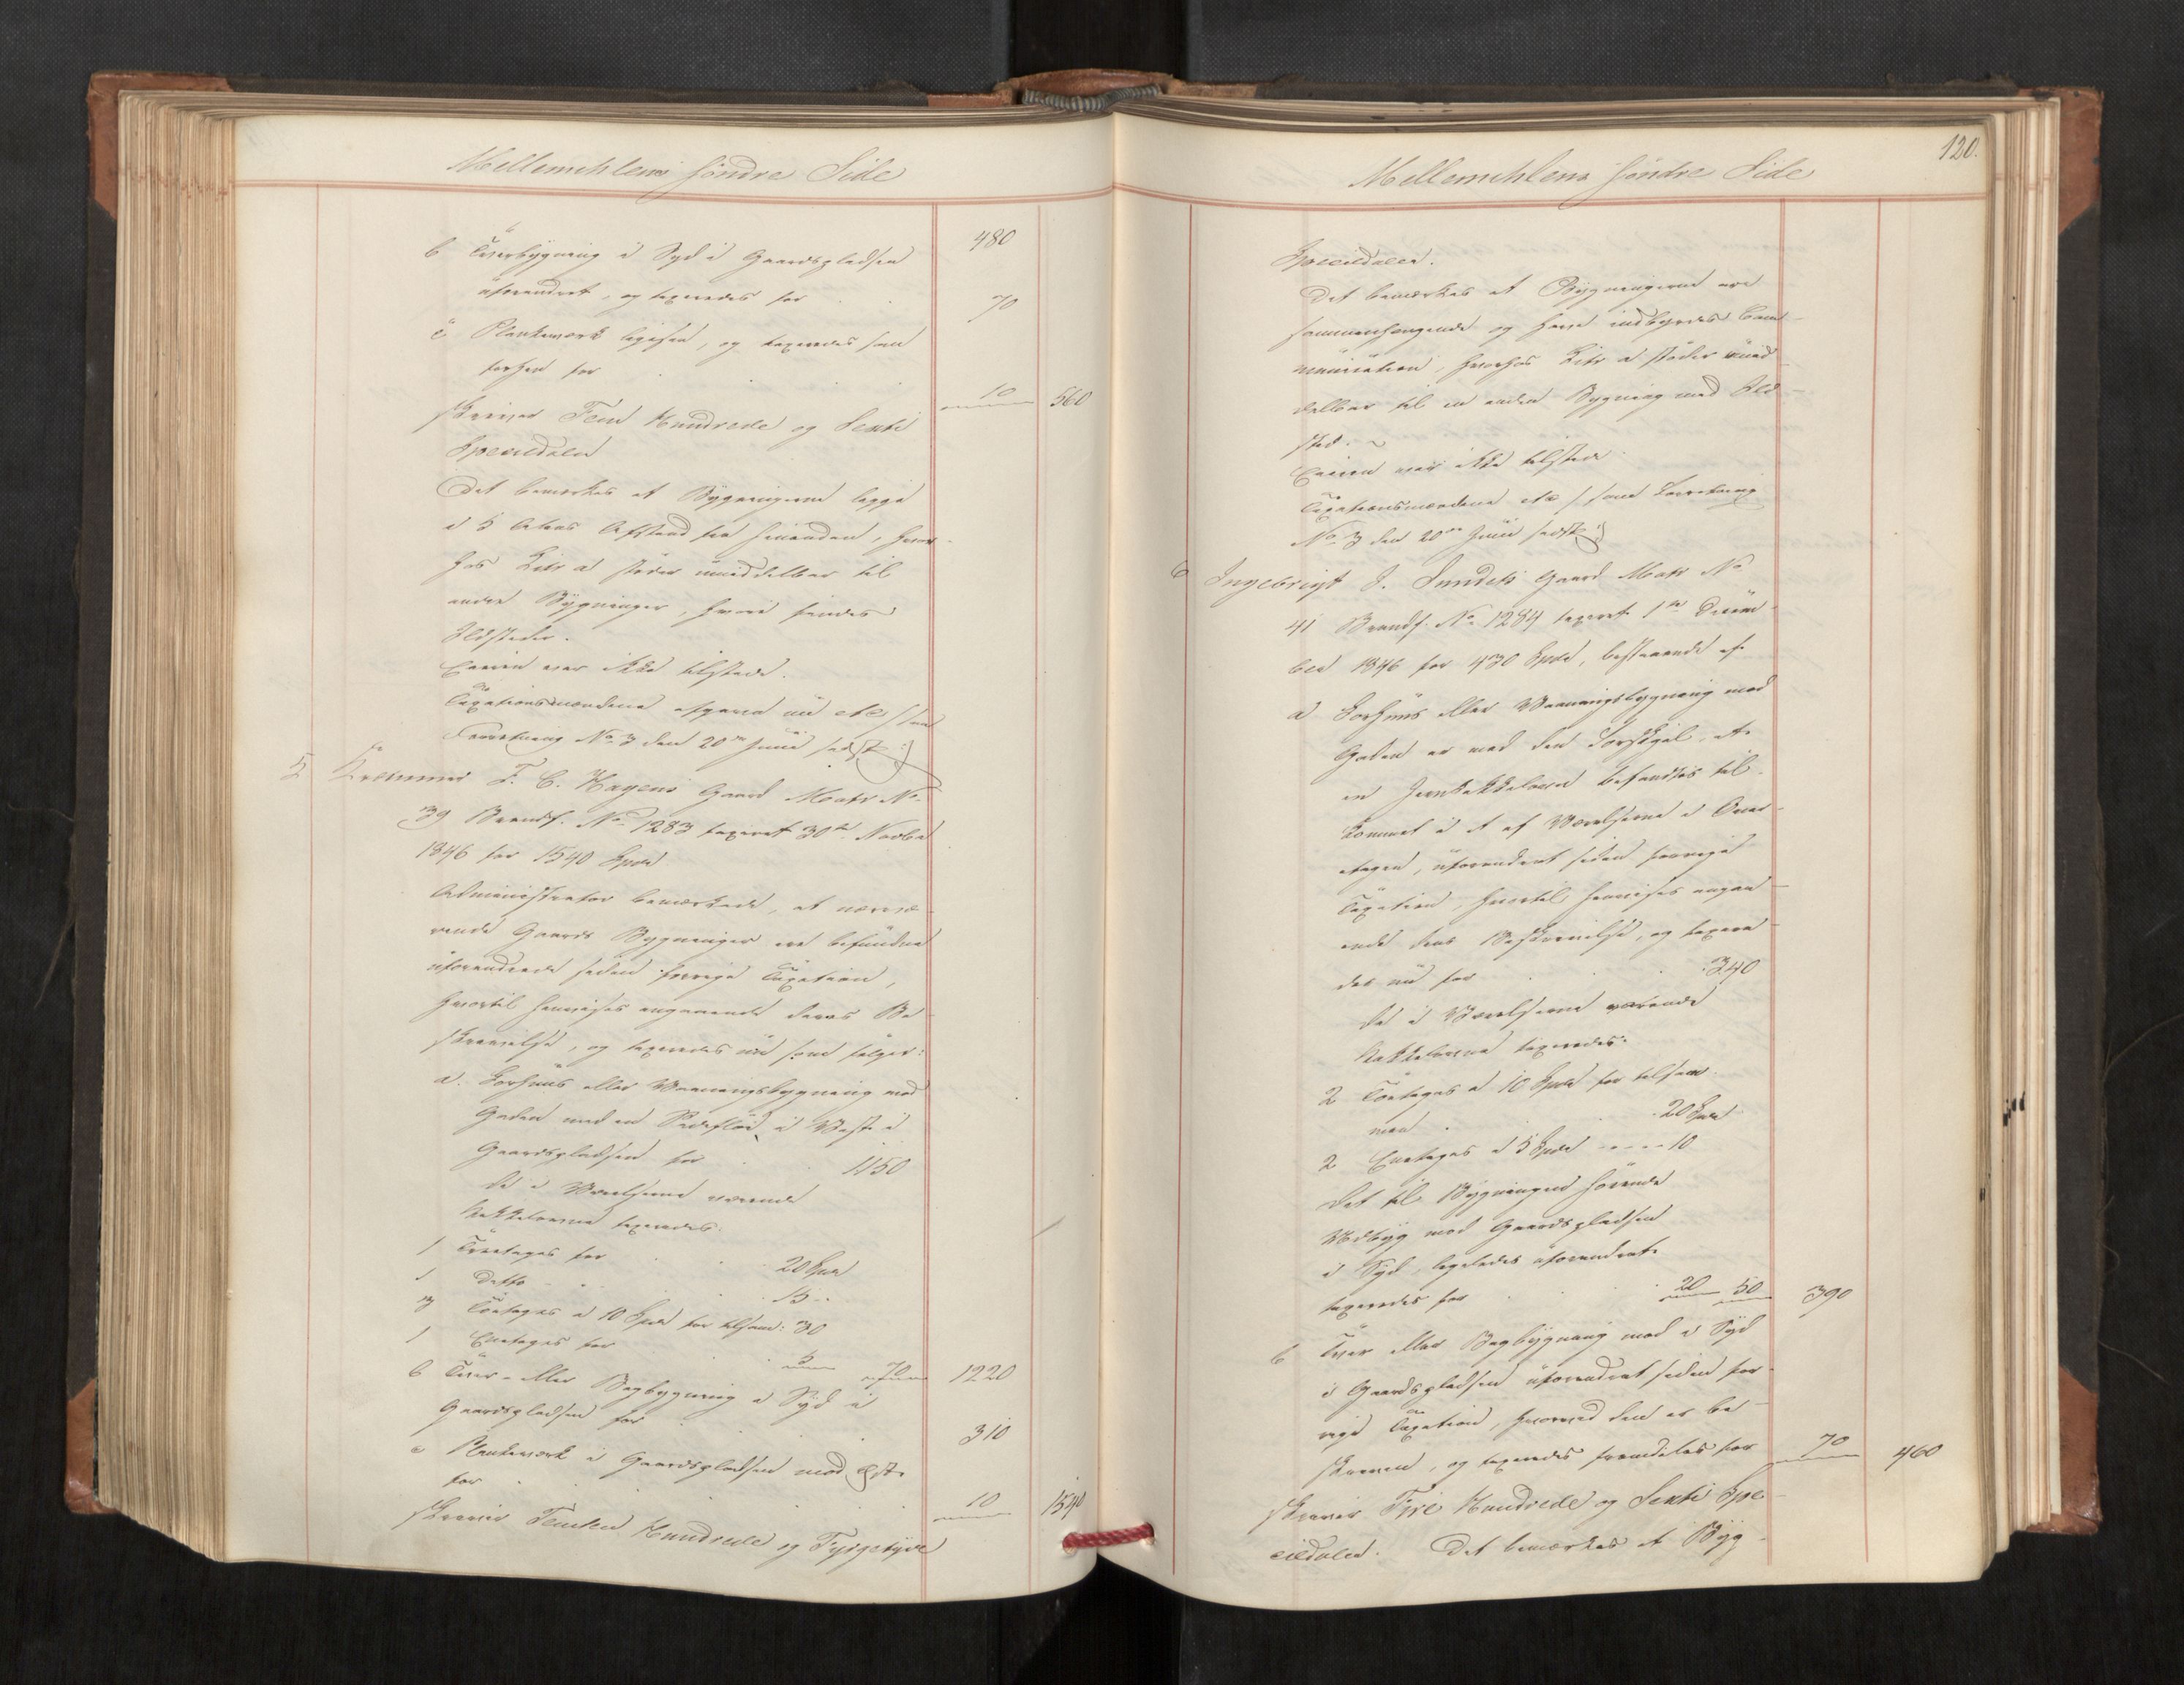 Mellemihlens søndre Side
480
b Tverbygning i Syd i Gaardspladsen
uforandret, og taxeredes for . . 70
c Plankeværk ligesaa, og taxeredes som
forhen for . . . 10 560
skriver Fem Hundrede og Sexti
Speciedaler
Det bemærkes at Bygningerne ligge
i 5 Alens Afstand fra hinanden, hvor-
hos Litr a støder umiddelbar til
andre Bygninger, hvori findes
Ildsteder.
Eieren var ikke tilstede.
Taxationsmændene afgave nu etc (som
Forretning No 3 den 20de Junii sidst:)
5 Kræmmer F. C. Hagens Gaard Matr No
39 Brandf. No 1283 taxeret 30te Novbr
1846 for 1540 Spd
Administrator bemærkede, at nærvæ-
rende Gaards Bygninger ere befundne
uforandrede siden forrige Taxation,
hvortil henvises angaaende deres Be-
skrivelse, og taxeredes nu som følger:
a. Forhuus eller Vaaningsbygning mod
Gaden med en Sidefløi i Vest i
Gaardspladsen for . . 1150
De i Værelserne værende
Kakkelovne taxeredes.
1 Treetages for . . . 20 Spd
1 Ditto . . . . 15 ..
3 Toetages a 10 Spd for tilsam: 30
1 Eenetages for . . . 5 70 1220
b Tver- eller Bagbygning i Syd i
Gaardspladsen for . . 310
c Plankeværk i Gaardspladsen mod Øst
for . . . . 10 1540
skriver Femten Hundrede og Fyrgetyve
120.
Mellemihlens søndre Side
Speciedaler.
Det bemærkes at Bygningerne ere
sammenhængende og have indbyrdes Com-
munication, hvorhos Litr a støder umid-
delbar til en anden Bygning med Ild-
sted.
Eieren var ikke tilstede.
Taxationsmændene etc (som Forretning
No 3 den 20de Junii sidst:)
6 Ingebrigt J. Sundets Gaard Matr No
41 Brandf. No 1284 taxeret 1ste Decem-
ber 1846 for 430 Spd, bestaaende af
a Forhuus eller Vaaningsbygning mod
Gaden er med den Forskjel, at
en Jernkakkelovn befandtes til-
kommet i et af Værelserne i Over-
etagen, uforandret siden forrige
Taxation, hvortil henvises angaa-
ende dens Beskrivelse, og taxere-
des nu for . . . 340
De i Værelserne værende
Kakkelovne taxeredes.
2 Toetages a 10 Spd for tilsam-
men . . . 20 Spd
2 Eenetages a 5 Spd - - - - 10
Det til Bygningen hørende
Udbyg mod Gaardspladsen
i Syd, ligeledes uforandret
taxeredes for . . . 20 50 390
b Tver eller Bagbygning mod i Syd
i Gaardspladsen uforandret siden for-
rige Taxation, hvorved den er be-
skreven, og taxeredes fremdeles for 70 460
skriver Fire Hundrede og Sexti Spe-
ciedaler. Det bemærkes at Byg-